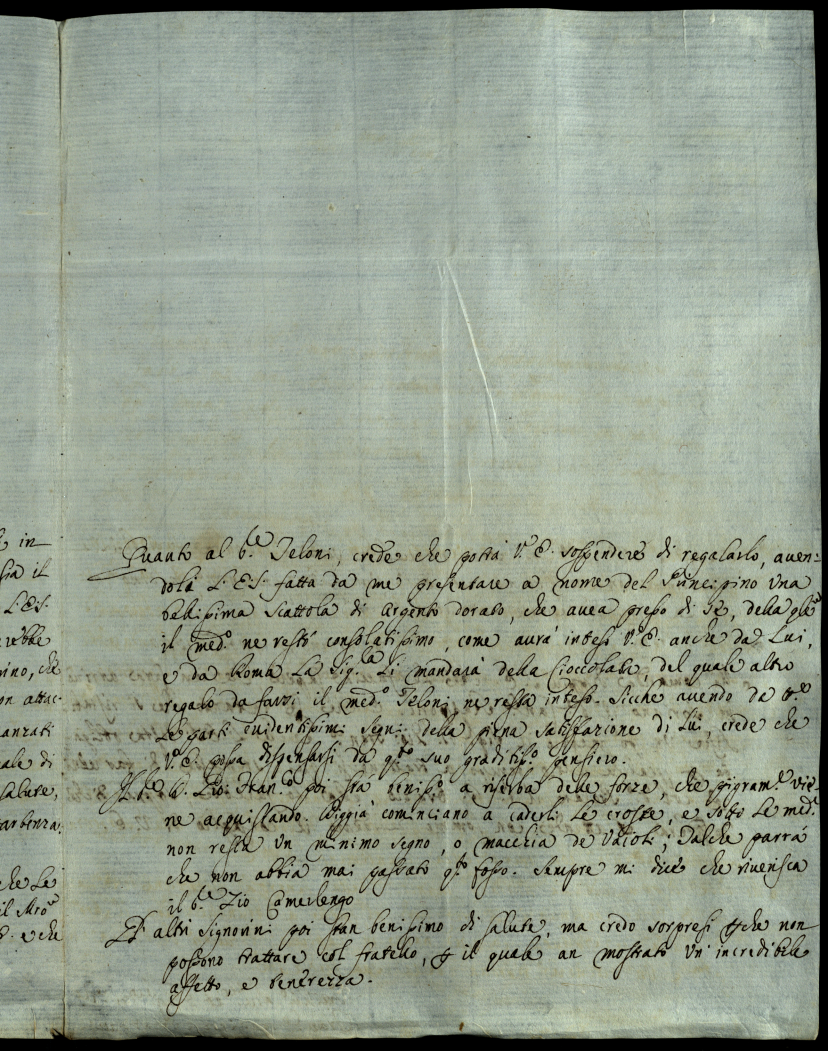 in
sia il
L. ES.
rebbe
rino, che
on attac-
anzati
ale di
salute,
che La
il Mro
E. e che
Quanto al Sre Teloni, crede che potrà V. E. sospendere di regalarlo, aven-
dola L. ES. fatta da me presentare a nome del Principino Una
bellissima Scattola di Argento dorato, che avea presso di Se, della qle
il medo ne restò consolatissimo, come aurà inteso V. E. anche da Lui,
e da Roma La Sigla Li mandarà della Cioccolate, del quale altro
regalo da farsi il medo Teloni ne resta inteso. Sicchè avendo da tte
Le parti evidentissimi Segni della piena satisfazione di Lui, crede che
V. E. possa dispensarsi da qsto suo graditissmo pensiero.
Il Sr D. Gio: Franco poi stà benissmo a riserba delle forze, che pigramte vie-
ne acquistando. Giggià cominciano a caderli Le croste, e sotto Le medme
non resta Un minimo segno, o macchia de Vaioli; Talche parrà
che non abbia mai passato qsto fosso. Sempre mi dice che riverisca
il Sre Zio Camerlengo
Gl altri Signorini poi stan benissimo di salute, ma credo sorpresi pche non
possono trattare col fratello, p il quale an mostrato Un incredibile
affetto, e tenerezza.